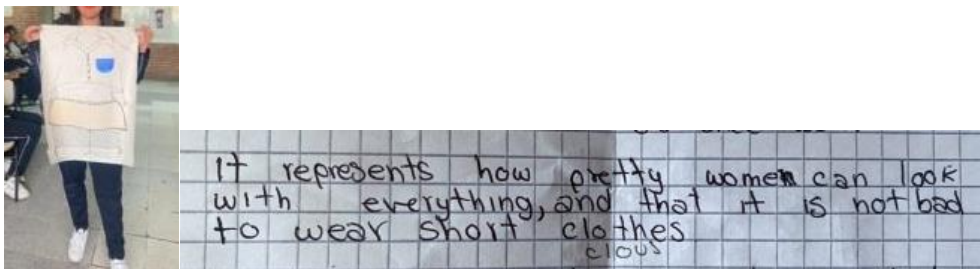 It represents how pretty women can look
with everything, and that it is not bad
to wear short clothes
clous